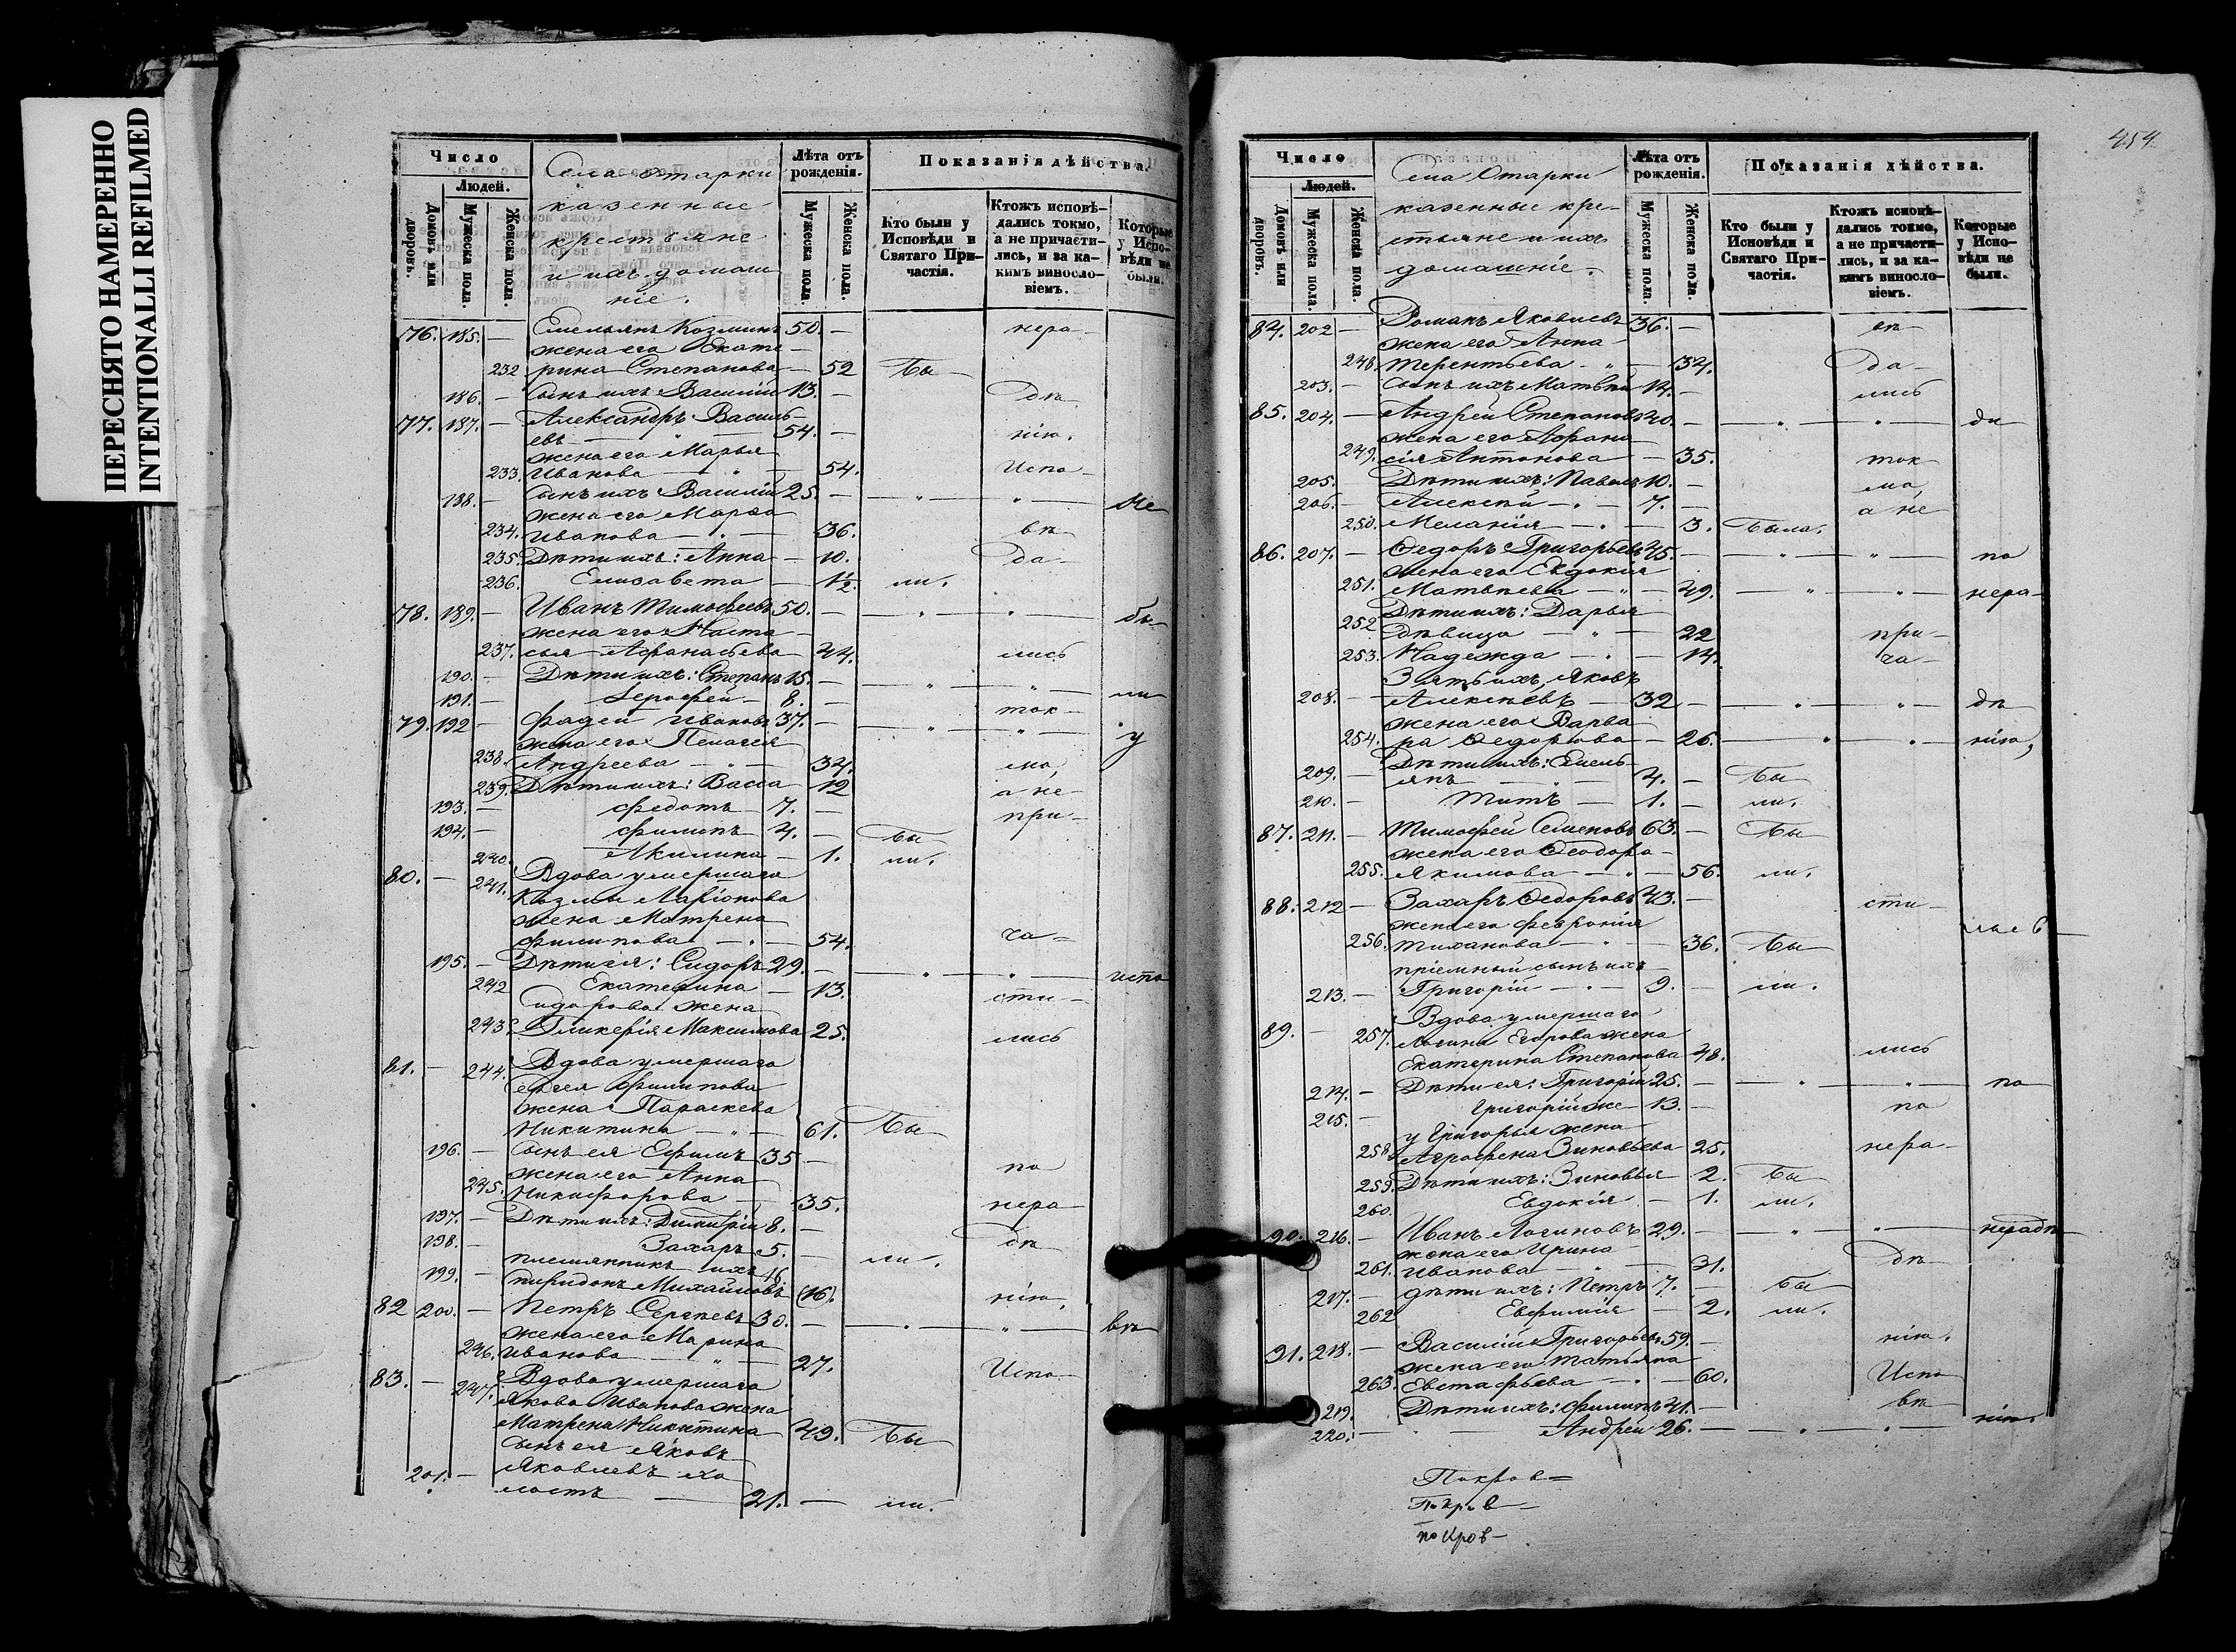 ПЕРЕСНЯТО НАМЕРЕННО
INTENTIONALLI REFILMED
Число
Людей.
Домовъ или дворовъ.
Мужеска пола.
Женска пола.
Села Старки
казенные
крестьяне
и ихъ домаш
ніе.
Лѣта отъ рожденія.
Мужеска пола.
Женска пола.
Показанія дѣйства.
Кто были у Исповѣди и Святаго Причастія.
Ктожъ исповѣдались токмо, а не причастились, и за какимъ винословіемъ.
Которые у Исповѣди не были.
76. 185. — Емельянъ Козминъ 50. — нера
жена его Екате
232 рина Степанова — 52 Бы
186. — Сынъ ихъ Василій 13. — дѣ
77. 187. — Александръ Василь
евъ — 54. — нію.
жена его Марья
233. Иванова — 54. Испо
188. — Сынъ ихъ Василій 25. — „ — „ — Не
жена его Марѳа
234. Иванова — 36. вѣ
235. Дѣти ихъ: Анна — 10. да
236. Елисавета — 1½. ли.
78. 189. — Иванъ Тимофеевъ 50. — „ — „ — бы
жена его Наста
237. сья Афанасьева 44. лись
190. — Дѣти ихъ: Степанъ 15. — „ — „ — ли
191. — Іерофей 8. — ток
79. 192 — Фадей Ивановъ 37. — „ — „ — у
жена его Пелагея
238. Андреева — 34. мо,
239. Дѣти ихъ: Васса 12 а не
193. — Федотъ — 7. — при
194. — Филипъ 4. — Бы
240. Акилина — 1. ли.
80. — 241. Вдова умершаго
Козмы Ларіонова
жена Матрена
Филипова — 54. ча
195. — Дѣти ея: Сидоръ 29. — „ — „ — испо
242 Екатерина — 13. сти
идорова жена
243. Гликерія Максимова 25. лись
81. — 244. Вдова умершаго
Сергея Филипова
жена Параскева
Никитина — „ — 61. Бы
196. — Сынъ ея Ефимъ 35 — по
жена его Анна
245. Никифорова — 35. нера
197. — Дѣти ихъ: Димитрій 8. —
198. — Захаръ 5. — дѣ
племянникъ ихъ 16 ли.
199. — пиридонъ Михайловъ (16). нію,
82 200. — Петръ Сергѣевъ 30. — „ — „ — вѣ
жена его Марина
246. Иванова — „ — 27.
83. — 247. Вдова умершаго Испо
Якова Иванова жена
Матрена Никитина 49. Бы
Сынъ ея Яковъ
201. — Яковлевъ хо
лостъ — 21. — ли.
454
Число
Людей.
Домовъ или дворовъ.
Мужеска пола.
Женска пола.
Села Старки
казенные кре
стьяне и ихъ
домашніе.
Лѣта отъ рожденія.
Мужеска пола.
Женска пола.
Показанія дѣйства.
Кто были у Исповѣди и Святаго Причастія.
Ктожъ исповѣдались токмо, а не причастились, и за какимъ винословіемъ.
Которые у Исповѣди не были.
84. 202 — Романъ Яковлевъ 36. — вѣ
жена его Анна
248 Терентьева „ — 34. да
203. — Сынъ ихъ Матвѣй 14. — лись
85. 204. — Андрей Степановъ 40. — „ — „ — ди
жена его Афана
249. сія Антонова — 35. ток
205. — Дѣти ихъ: Павелъ 10. — мо,
206. — Алексѣй — 7. — а не
250. Меланія — 3. Была.
86. 207. — Федоръ Григорьевъ 45. — „ — „ — по
жена его Евдокія
251. Матвѣева — „ — 49. — „ — „ — нера
Дѣти ихъ: Дарья
252 дѣвица — „ — 22 при
253. Надежда — 14. ча
Зять ихъ Яковъ
208. — Алексѣевъ — 32 — „ — „ — дѣ
жена его Варва
254. ра Федорова — 26. — „ — „ — нію,
Дѣти ихъ: Емель
209. — янъ — „ — 4. — Бы
210. — Титъ — 1. — ли.
87. 211. — Тимофей Семеновъ 63. — Бы
жена его Феодора
255. Якимова — „ — 56. ли.
88. 212 — Захаръ Федоровъ 43. — сти
жена его Феврония
256. Тиханова — „ — 36. Бы
пріемный сынъ ихъ
213. — Григорій — 9. — ли.
Вдова умершаго
89. — 257. Логина Егорова жена
Екатерина Степанова 48. лись
214. — Дѣти ея: Григорій 25. — „ — „ — по
215. — Григорій же 13. — по
у Григорья жена
258. Агрофена Зиновьева 25. нера
259. Дѣти ихъ: Зиновья 2. Бы
260. Евдокія — 1. ли.
90. 216. — Иванъ Логиновъ 29. — „ — „ — нерадѣ
жена его Ирина
261. Иванова — 31. дѣ
217. — дѣти ихъ: Петръ 7. — Бы
262 Евфимія — 2. ли.
91. 218. — Василій Григорьевъ 59. — нію.
жена его Татьяна
263. Евстафьева — 60. Испо
219. — Дѣти ихъ: Филипъ 41. — вѣ
220. — Андрей 26. — „ — „ — нію.
Покров
Покров
покров